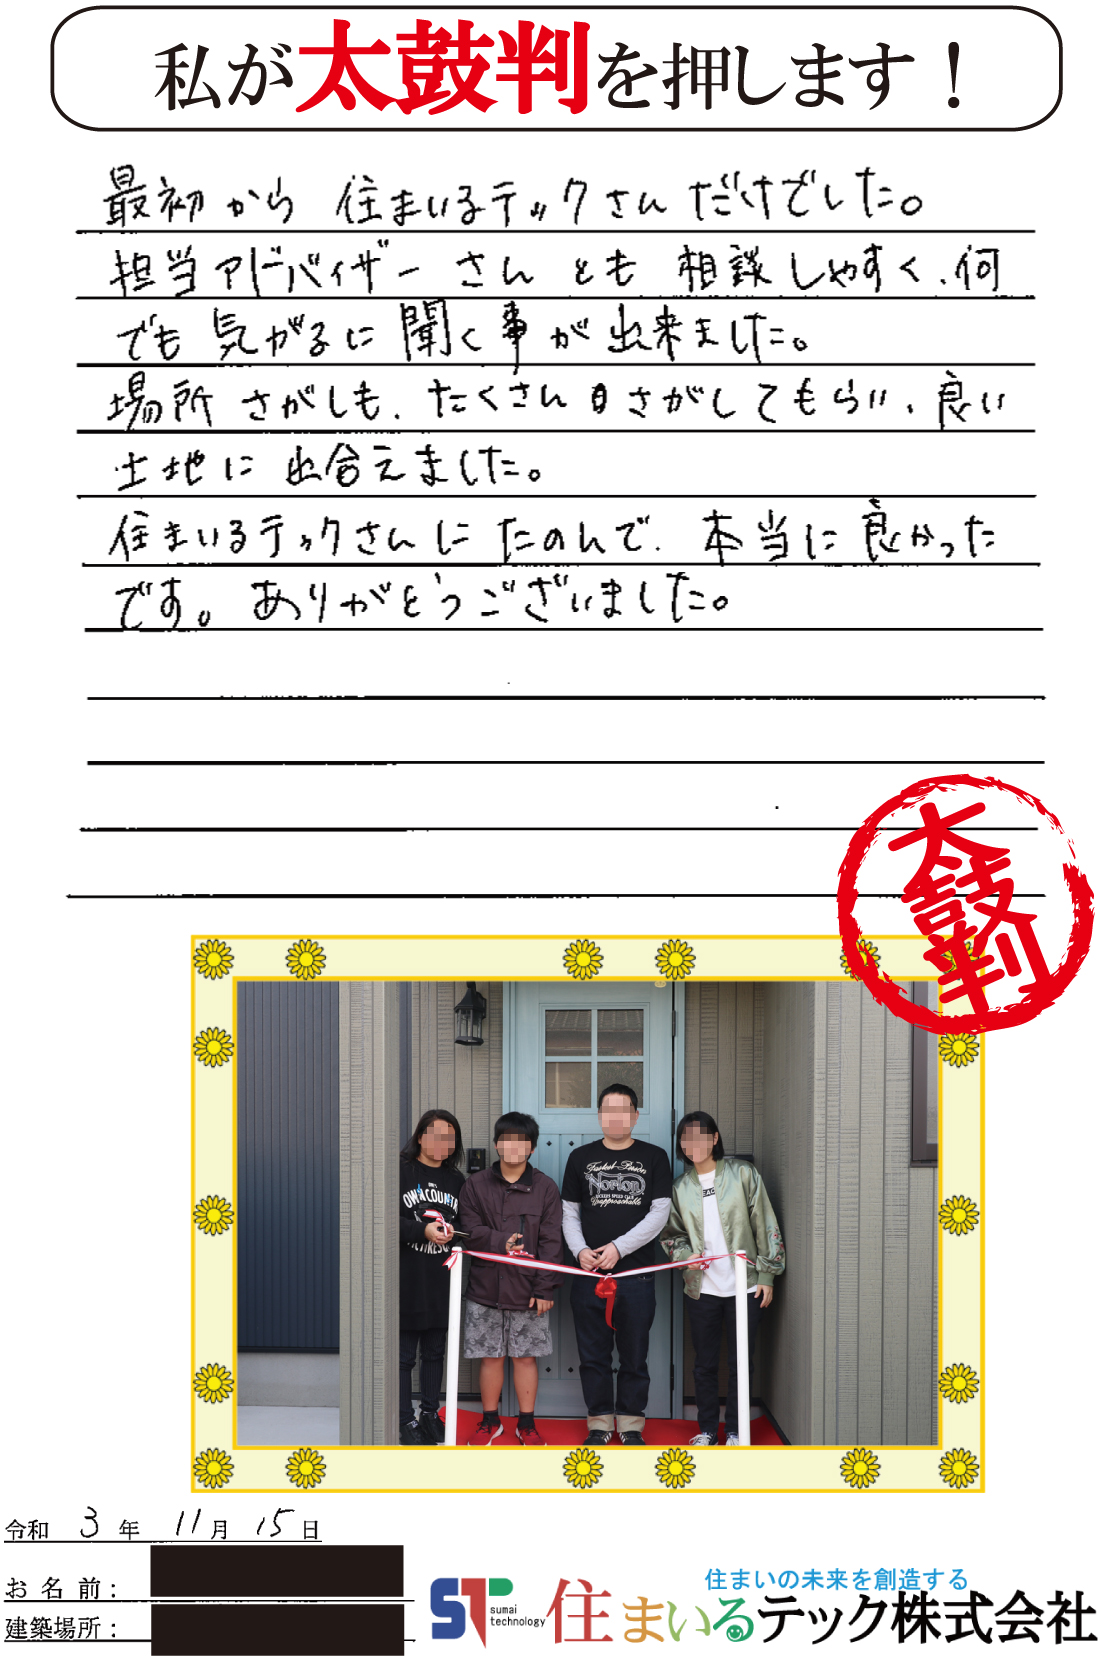 私が太鼓判を押します！
最初から 住まいるテックさんだけでした。
担当アドバイザーさんとも 相談しやすく、何
でも 気がるに聞く事が出来ました。
場所 さがしも、たくさんさがしてもらい、良い
土地に出合えました。
住まいるテックさんにたのんで、本当に良かった
です。ありがとうございました。
太鼓判
OWN COUNTRY
Fastest Person
Norton
Unapproachable
令和 3 年 11月 15日
お名前：
建築場所：
ST sumai technology
住まいの未来を創造する
住まいるテック株式会社